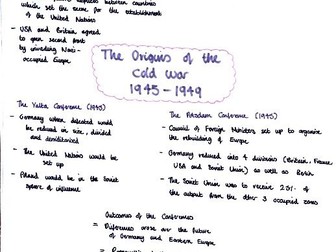 which set the scene for the establishment
of the United Nations
- USA and Britain agreed
to open second front
by invading Nazi-
occupied Europe
The Origins of the
Cold War
1945-1949
The Yalta Conference (1945)
- Germany when defeated would
be reduced in size, divided
and demilitarized
- The United Nations would be
set up
- Poland would be in the Soviet
sphere of influence
The Potsdam Conference (1945)
- Council of Foreign Ministers set up to organise
the rebuilding of Europe
- Germany reduced into 4 divisions (Britain, France,
USA and Soviet Union) as well as Berlin
- The Soviet Union was to receive 25% of
the output from the other 3 occupied zones
Outcomes of the Conferences
= Differences arose over the future
of Germany and Eastern Europe